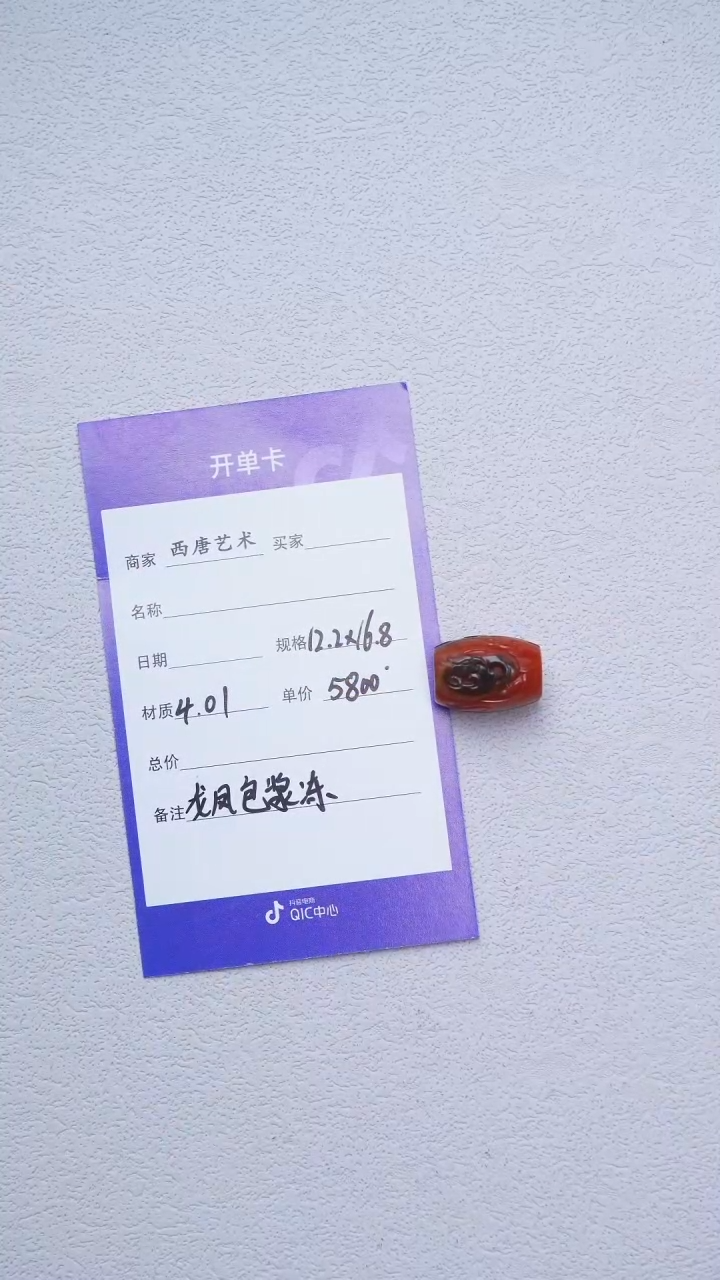 开单卡
商家 西唐艺术 买家
名称
日期 规格 12.2x16.8
材质 4.01 单价 5800
总价
备注 龙凤包浆冻
抖音电商
QIC中心